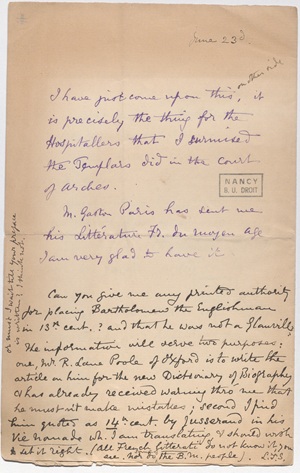 June 23d
on other side
I have just come upon this, it
is precisely the thing for the
Hospitallers that I surmised
the Templars did in the court
of Arches.
NANCY
B. U. DROIT
M. Gaston Paris has sent me
his Littérature Fr. du moyen age
I am very glad to have it
Can you give me any printed authority
for placing Bartholomew the Englishman
in 13th cent.? and that he was not a Glanville
The information will serve two purposes:
one, Mr R. Lane Poole of Oxford is to write the
article on him for the new Dictionary of Biography
& has already received warning thro' me that
he must not make mistakes; second I find
him quoted as 14th cent. by Jusserand in his
Vie nomade wh. I am translating & should wish
to set it right. (All French Littératis do not know it,
nor do the B.M. people).
or must I wait till your preface
is written? I think not,